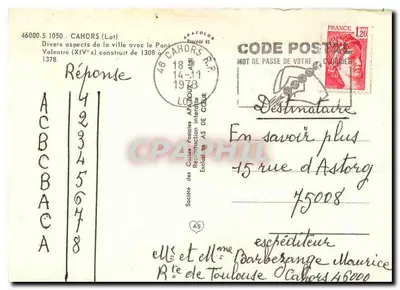 46000-S.1050 - CAHORS (Lot)
Divers aspects de la ville avec le Pont
Valentré (XIVe s) construit de 1308 à
1378
Réponse
A 1
C 2
B 3
C 4
B 5
A 6
C 7
A 8
Société des Cartes Postales APA-POUX - ALBI
Reproduction interdite
Exclusivité AS DE CŒUR
AS
46 CAHORS R.P.
18 H
14-11
1978
LOT
CODE POSTAL
MOT DE PASSE DE VOTRE COURRIER
FRANCE
1,20
Destinataire
En savoir plus
15 rue d'Astorg
75008
expéditeur
Mr et Mme Barbezange Maurice
Rte de Toulouse Cahors 46000